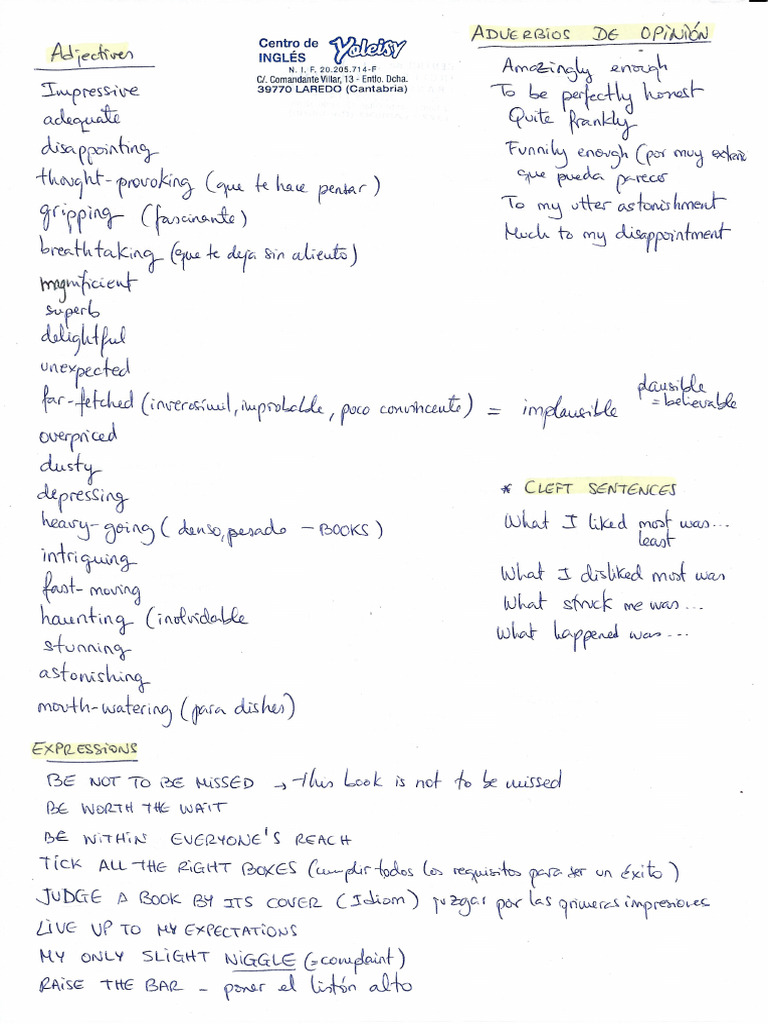 Adjectives
Impressive
adequate
disappointing
thought-provoking (que te hace pensar)
gripping (fascinante)
breathtaking (que te deja sin aliento)
magnificient
superb
delightful
unexpected
far-fetched (inverosímil, improbable, poco convincente) = implausible
plausible
= believable
overpriced
dusty
depressing
heavy-going (denso, pesado - BOOKS)
intriguing
fast-moving
haunting (inolvidable
stunning
astonishing
mouth-watering (para dishes)
Centro de INGLÉS Yoleisy
N. I. F. 20.205.714-F
C/. Comandante Villar, 13 - Entlo. Dcha.
39770 LAREDO (Cantabria)
ADVERBIOS DE OPINIÓN
Amazingly enough
To be perfectly honest
Quite frankly
Funnily enough (por muy
que pueda parecer
To my utter astonishment
Much to my disappointment
* CLEFT SENTENCES
What I liked most was...
least
What I disliked most was
What struck me was...
What happened was...
EXPRESSIONS
BE NOT TO BE MISSED → This book is not to be missed
BE WORTH THE WAIT
BE WITHIN EVERYONE'S REACH
TICK ALL THE RIGHT BOXES (cumplir todos los requisitos para ser un éxito)
JUDGE A BOOK BY ITS COVER (Idiom) juzgar por las primeras impresiones
LIVE UP TO MY EXPECTATIONS
MY ONLY SLIGHT NIGGLE (=complaint)
RAISE THE BAR - poner el listón alto